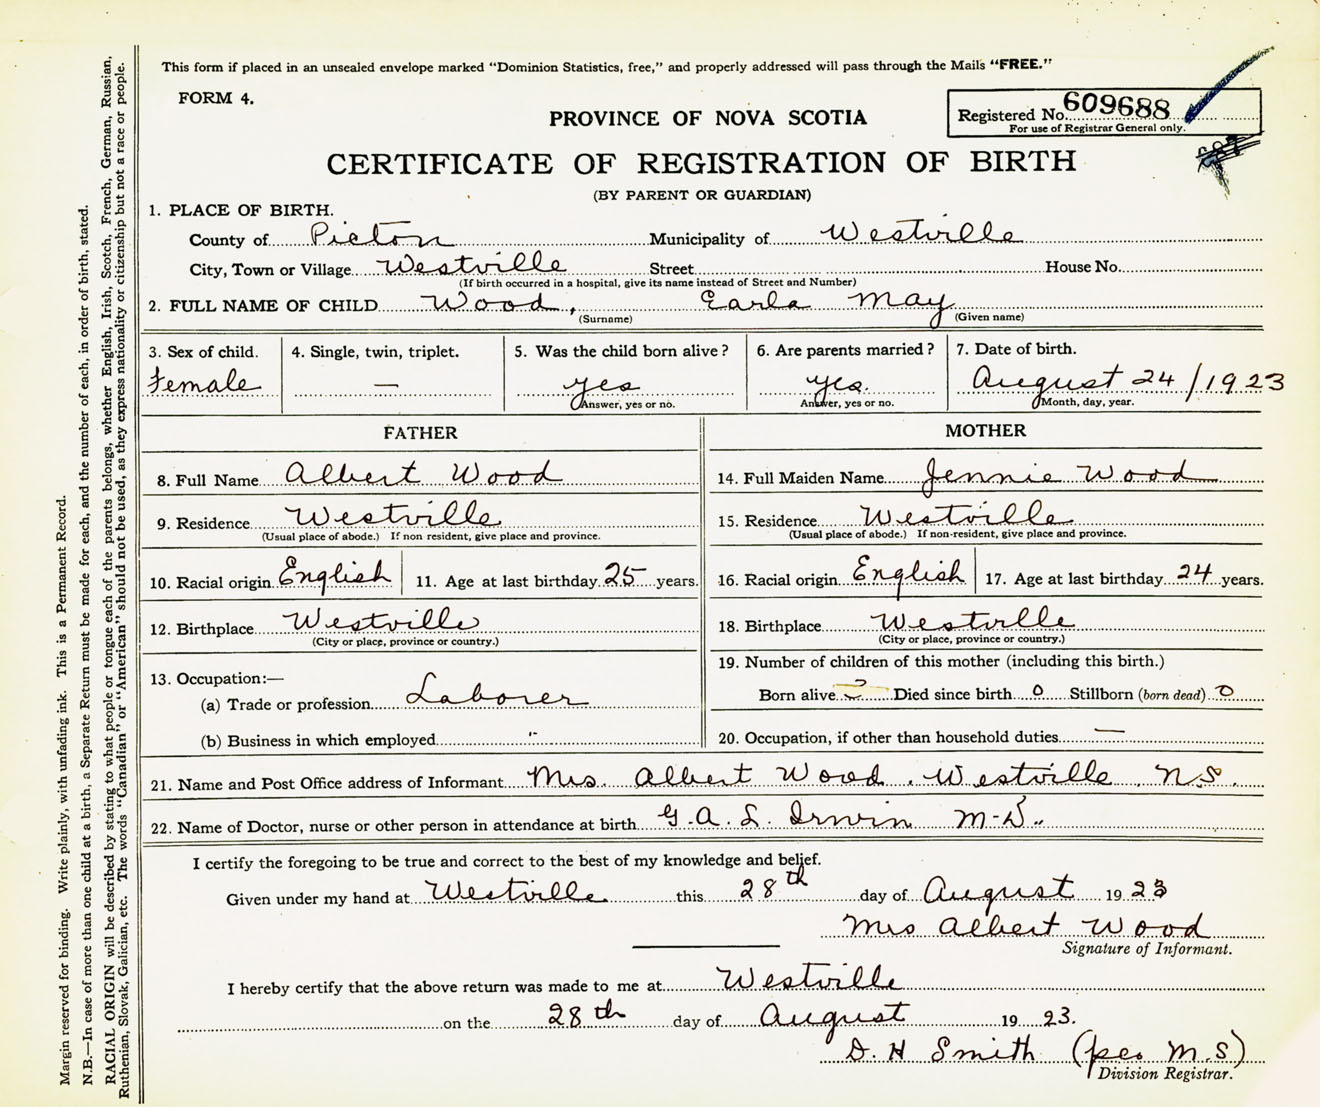 This form if placed in an unsealed envelope marked "Dominion Statistics, free," and properly addressed will pass through the Mails "FREE."
FORM 4.
PROVINCE OF NOVA SCOTIA
Registered No. 609688
For use of Registrar General only.
CERTIFICATE OF REGISTRATION OF BIRTH
(BY PARENT OR GUARDIAN)
1. PLACE OF BIRTH.
County of Pictou Municipality of Westville
City, Town or Village Westville Street House No.
(If birth occurred in a hospital, give its name instead of Street and Number)
2. FULL NAME OF CHILD Wood, Earla May
(Surname) (Given name)
3. Sex of child. 4. Single, twin, triplet. 5. Was the child born alive? 6. Are parents married? 7. Date of birth.
Female — yes yes. August 24/1923
Answer, yes or no. Answer, yes or no. Month, day, year.
FATHER
8. Full Name Albert Wood
9. Residence Westville
(Usual place of abode.) If non resident, give place and province.
10. Racial origin English 11. Age at last birthday 25 years.
12. Birthplace Westville
(City or place, province or country.)
13. Occupation:—
(a) Trade or profession Laborer
(b) Business in which employed "
MOTHER
14. Full Maiden Name Jennie Wood
15. Residence Westville
(Usual place of abode.) If non-resident, give place and province.
16. Racial origin English 17. Age at last birthday 24 years.
18. Birthplace Westville
(City or place, province or country.)
19. Number of children of this mother (including this birth.)
Born alive Died since birth 0 Stillborn (born dead) 0
20. Occupation, if other than household duties —
21. Name and Post Office address of Informant Mrs. Albert Wood. Westville N.S.
22. Name of Doctor, nurse or other person in attendance at birth G.A.L. Irwin M-D..
I certify the foregoing to be true and correct to the best of my knowledge and belief.
Given under my hand at Westville this 28th day of August 1923
Mrs Albert Wood
Signature of Informant.
I hereby certify that the above return was made to me at Westville
on the 28th day of August 1923.
D. H Smith (per M.S)
Division Registrar.
Margin reserved for binding. Write plainly, with unfading ink. This is a Permanent Record.
N.B.—In case of more than one child at a birth, a Separate Return must be made for each, and the number of each, in order of birth, stated.
RACIAL ORIGIN will be described by stating to what people or tongue each of the parents belongs, whether English, Irish, Scotch, French, German, Russian,
Ruthenian, Slovak, Galician, etc. The words "Canadian" or "American" should not be used, as they express nationality or citizenship but not a race or people.